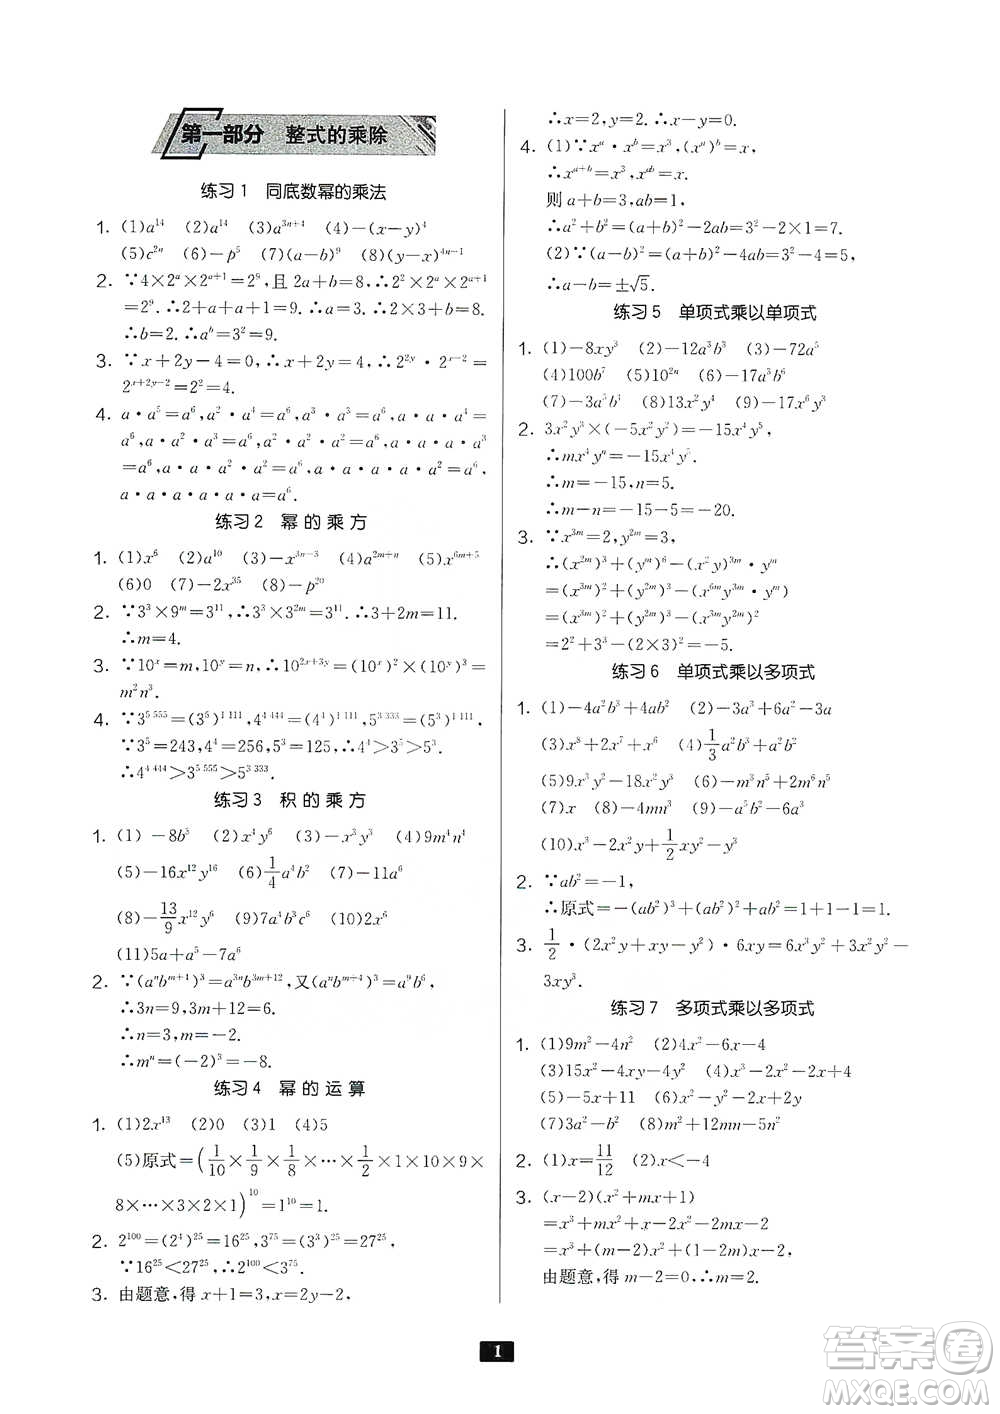 第一部分 整式的乘除
练习1 同底数幂的乘法
1. (1)a¹⁴ (2)a¹⁴ (3)a³ⁿ⁺⁴ (4)-(x-y)⁴
(5)c²ⁿ (6)-p⁵ (7)(a-b)⁹ (8)(y-x)⁴ⁿ⁻¹
2. ∵4×2ᵃ×2ᵃ⁺¹=2⁹,且2a+b=8,∴2²×2ᵃ×2ᵃ⁺¹
=2⁹.∴2+a+a+1=9.∴a=3.∴2×3+b=8.
∴b=2.∴aᵇ=3²=9.
3. ∵x+2y-4=0,∴x+2y=4.∴2²ʸ·2ˣ⁻²=
2ˣ⁺²ʸ⁻²=2⁴⁻²=2²=4.
4. a·a⁵=a⁶,a²·a⁴=a⁶,a³·a³=a⁶,a·a·a⁴=
a⁶,a·a²·a³=a⁶,a²·a²·a²=a⁶,a·a·a·a³
=a⁶,a·a·a²·a²=a⁶,a·a·a·a·a²=a⁶,
a·a·a·a·a·a=a⁶.
练习2 幂的乘方
1. (1)x⁶ (2)a¹⁰ (3)-x³ⁿ⁻³ (4)a²ᵐ⁺ⁿ (5)x⁶ᵐ⁺⁵
(6)0 (7)-2x³⁵ (8)-p²⁰
2. ∵3³×9ᵐ=3¹¹,∴3³×3²ᵐ=3¹¹.∴3+2m=11.
∴m=4.
3. ∵10ˣ=m,10ʸ=n,∴10²ˣ⁺³ʸ=(10ˣ)²×(10ʸ)³=
m²n³.
4. ∵3⁵ ⁵⁵⁵=(3⁵)¹ ¹¹¹,4⁴ ⁴⁴⁴=(4⁴)¹ ¹¹¹,5³ ³³³=(5³)¹ ¹¹¹.
∵3⁵=243,4⁴=256,5³=125,∴4⁴>3⁵>5³.
∴4⁴ ⁴⁴⁴>3⁵ ⁵⁵⁵>5³ ³³³.
练习3 积的乘方
1. (1)-8b³ (2)x⁴y⁶ (3)-x³y³ (4)9m⁴n⁴
(5)-16x¹²y¹⁶ (6)1/4a⁴b² (7)-11a⁶
(8)-13/9x¹²y⁶ (9)7a⁴b³c⁶ (10)2x⁶
(11)5a+a⁵-7a⁶
2. ∵(aⁿbᵐ⁺⁴)³=a³ⁿb³ᵐ⁺¹²,又(aⁿbᵐ⁺⁴)³=a⁹b⁶,
∴3n=9,3m+12=6.
∴n=3,m=-2.
∴mⁿ=(-2)³=-8.
练习4 幂的运算
1. (1)2x¹³ (2)0 (3)1 (4)5
(5)原式=(1/10×1/9×1/8×···×1/2×1×10×9×
8×···×3×2×1)¹⁰=1¹⁰=1.
2. 2¹⁰⁰=(2⁴)²⁵=16²⁵,3⁷⁵=(3³)²⁵=27²⁵.
∵16²⁵<27²⁵,∴2¹⁰⁰<3⁷⁵.
3. 由题意,得x+1=3,x=2y-2,
∴x=2,y=2.∴x-y=0.
4. (1)∵xᵃ·xᵇ=x³,(xᵃ)ᵇ=x,
∴xᵃ⁺ᵇ=x³,xᵃᵇ=x.
则a+b=3,ab=1,
∴a²+b²=(a+b)²-2ab=3²-2×1=7.
(2)∵(a-b)²=(a+b)²-4ab=3²-4×1=5,
∴a-b=±√5.
练习5 单项式乘以单项式
1. (1)-8xy³ (2)-12a³b³ (3)-72a⁵
(4)100b⁷ (5)10²ⁿ (6)-17a³b⁶
(7)-3a⁵b⁴ (8)13x²y⁴ (9)-17x⁶y³
2. 3x²y³×(-5x²y²)=-15x⁴y⁵,
∴mx⁴yⁿ=-15x⁴y⁵.
∴m=-15,n=5.
∴m-n=-15-5=-20.
3. ∵x³ᵐ=2,y²ᵐ=3,
∴(x²ᵐ)³+(yᵐ)⁶-(x²y)³ᵐ·yᵐ
=(x³ᵐ)²+(y²ᵐ)³-(x⁶ᵐy³ᵐ×yᵐ)
=(x³ᵐ)²+(y²ᵐ)³-(x³ᵐy²ᵐ)²
=2²+3³-(2×3)²=-5.
练习6 单项式乘以多项式
1. (1)-4a²b³+4ab² (2)-3a³+6a²-3a
(3)x⁸+2x⁷+x⁶ (4)1/3a²b³+a²b²
(5)9x³y²-18x²y³ (6)-m³n⁵+2m⁵n⁵
(7)x (8)-4mn³ (9)-a⁵b²+3a³
(10)x³-x²y+1/2xy²-y³
2. ∵ab²=-1,
∴原式=-(ab²)³+(ab²)²+ab²=1+1-1=1.
3. 1/2·(2x²y+4xy-y²)·6xy=6x³y²+12x²y²-
3xy³.
练习7 多项式乘以多项式
1. (1)9m²-4n² (2)4x²-6x-4
(3)15x²-4xy-4y² (4)x³-2x²-2x+4
(5)-5x+11 (6)-x²-2xy+9y²
(7)3a²-b² (8)m²+12mn-5n²
2. (1)x=11/12 (2)x<-4
3. (x-2)(x²+mx+1)
=x³+mx²+x-2x²-2mx-2
=x³+(m-2)x²+(1-2m)x-2
由题意,得m-2=0,∴m=2.
1
答案圈
MXQE.COM